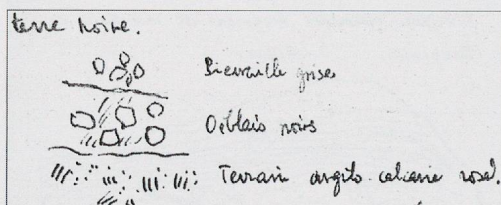 terre noire.
Pierraille grise
Déblais noirs
Terrain argilo calcaire rosé.